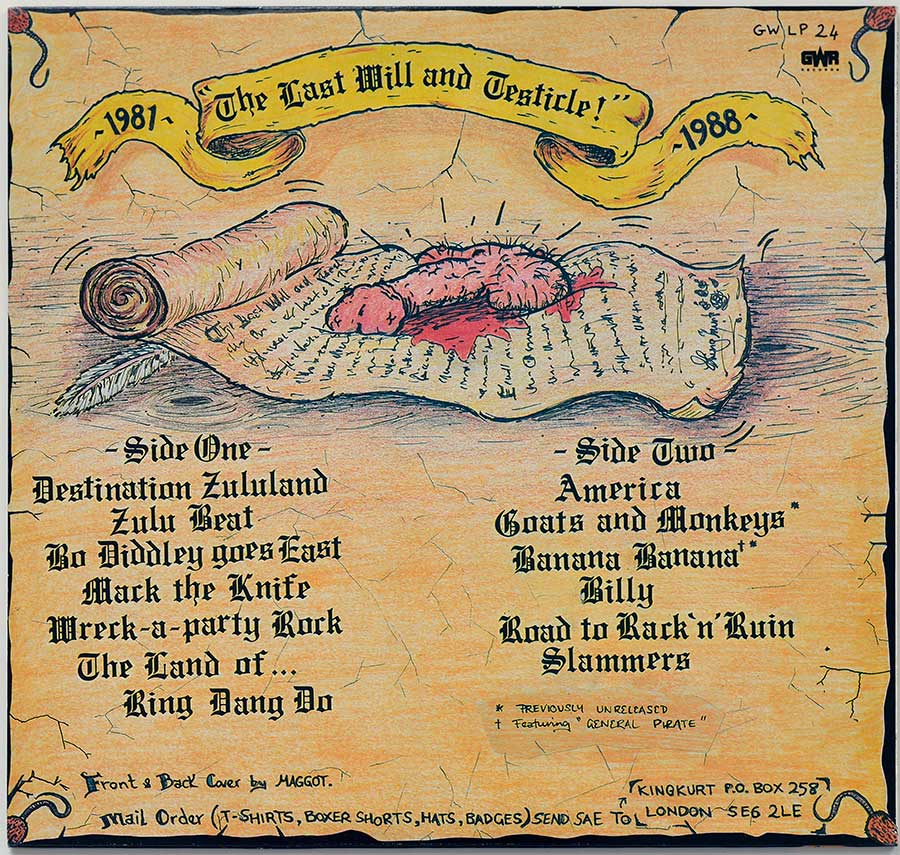 GWLP 24
GWR
RECORDS
"The Last Will and Testicle!"
~1981~
~1988~
The Last Will and
- Side One -
Destination Zululand
Zulu Beat
Bo Diddley goes East
Mack the Knife
Wreck-a-party Rock
The Land of...
Ring Dang Do
- Side Two -
America
Goats and Monkeys*
Banana Banana†*
Billy
Road to Rack'n'Ruin
Slammers
* PREVIOUSLY UNRELEASED
† Featuring "GENERAL PIRATE"
Front & Back Cover by MAGGOT.
Mail Order (T-SHIRTS, BOXER SHORTS, HATS, BADGES) SEND SAE TO
KINGKURT P.O. BOX 258
LONDON SE6 2LE